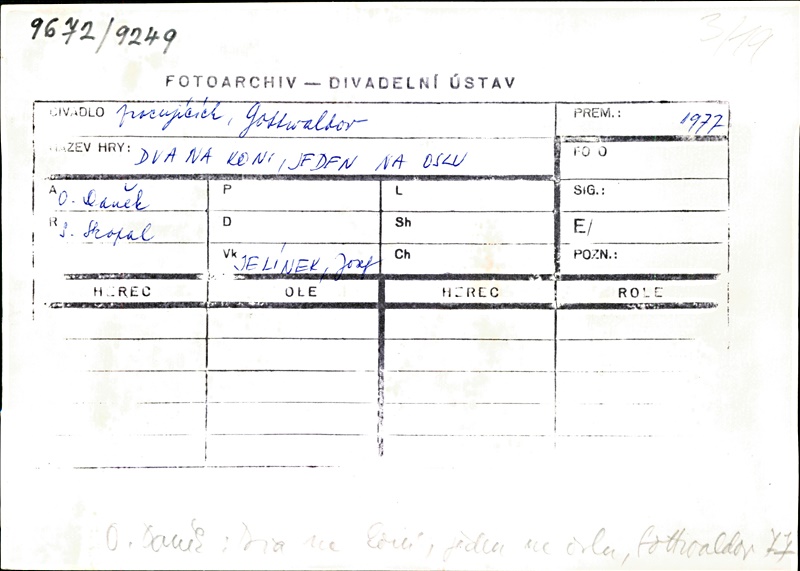 9672/9249
3/49
FOTOARCHIV — DIVADELNÍ ÚSTAV
DIVADLO pracujících, Gottwaldov
PREM.: 1977
NÁZEV HRY: DVA NA KONI, JEDEN NA OSLU
FO O
A O. Daněk
P
L
SIG.:
R S. Skopal
D
Sh
E/
Vk JELÍNEK, Josef
Ch
POZN.:
HEREC
OLE
HEREC
ROLE
O. Daněk: Dva na koni, jeden na oslu, Gottwaldov 77